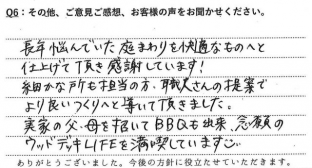 Q6：その他、ご意見ご感想、お客様の声をお聞かせください。
長年悩んでいた庭まわりを快適なものへと
仕上げて頂き感謝しています!
細かな所も担当の方、職人さんの提案で
より良いつくりへと導いて頂きました。
実家の父・母を招いてBBQも出来、念願の
ウッドデッキLIFEを満喫しています
ありがとうございました。今後の方針に役立たせていただきます。